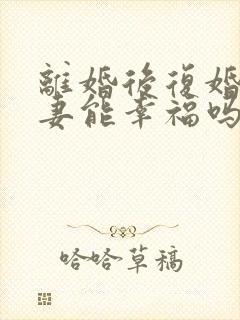 離婚後復婚
妻能幸福嗎
哈哈草稿